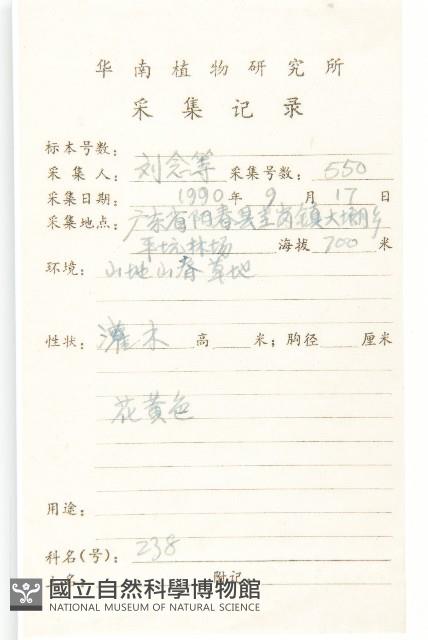 华南植物研究所
采集记录
标本号数：
采集人：刘念等 采集号数：550
采集日期：1990年9月17日
采集地点：广东省阳春县圭岗镇大垌乡
平坑林场 海拔700米
环境：山地山脊草地
性状：灌木 高 米；胸径 厘米
花黄色
用途：
科名(号)：238
附记
國立自然科學博物館
NATIONAL MUSEUM OF NATURAL SCIENCE